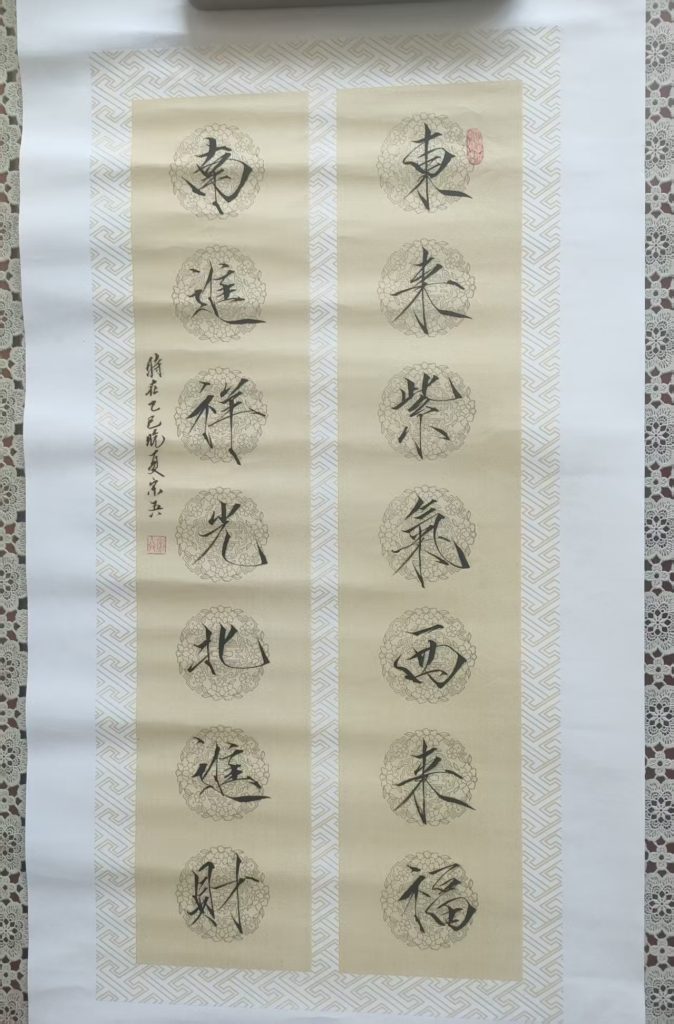 東来紫氣西来福
南進祥光北進財
時在乙巳晚夏宗兵